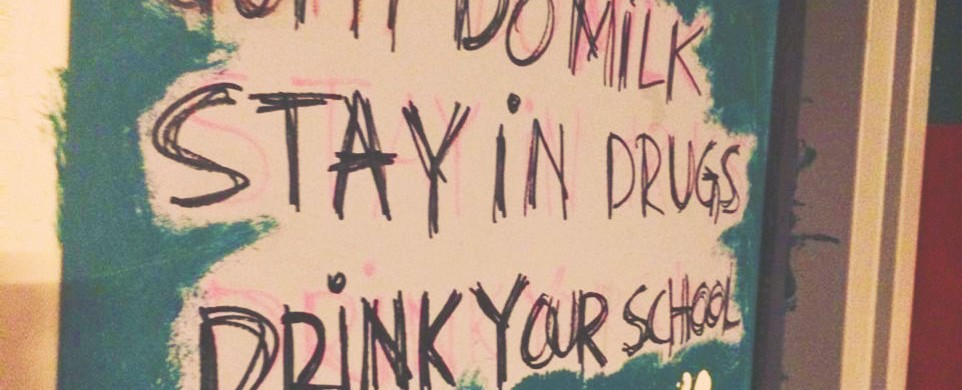 DO MiLK
STAY iN DRUGS
DRiNK YOUR SCHOOL